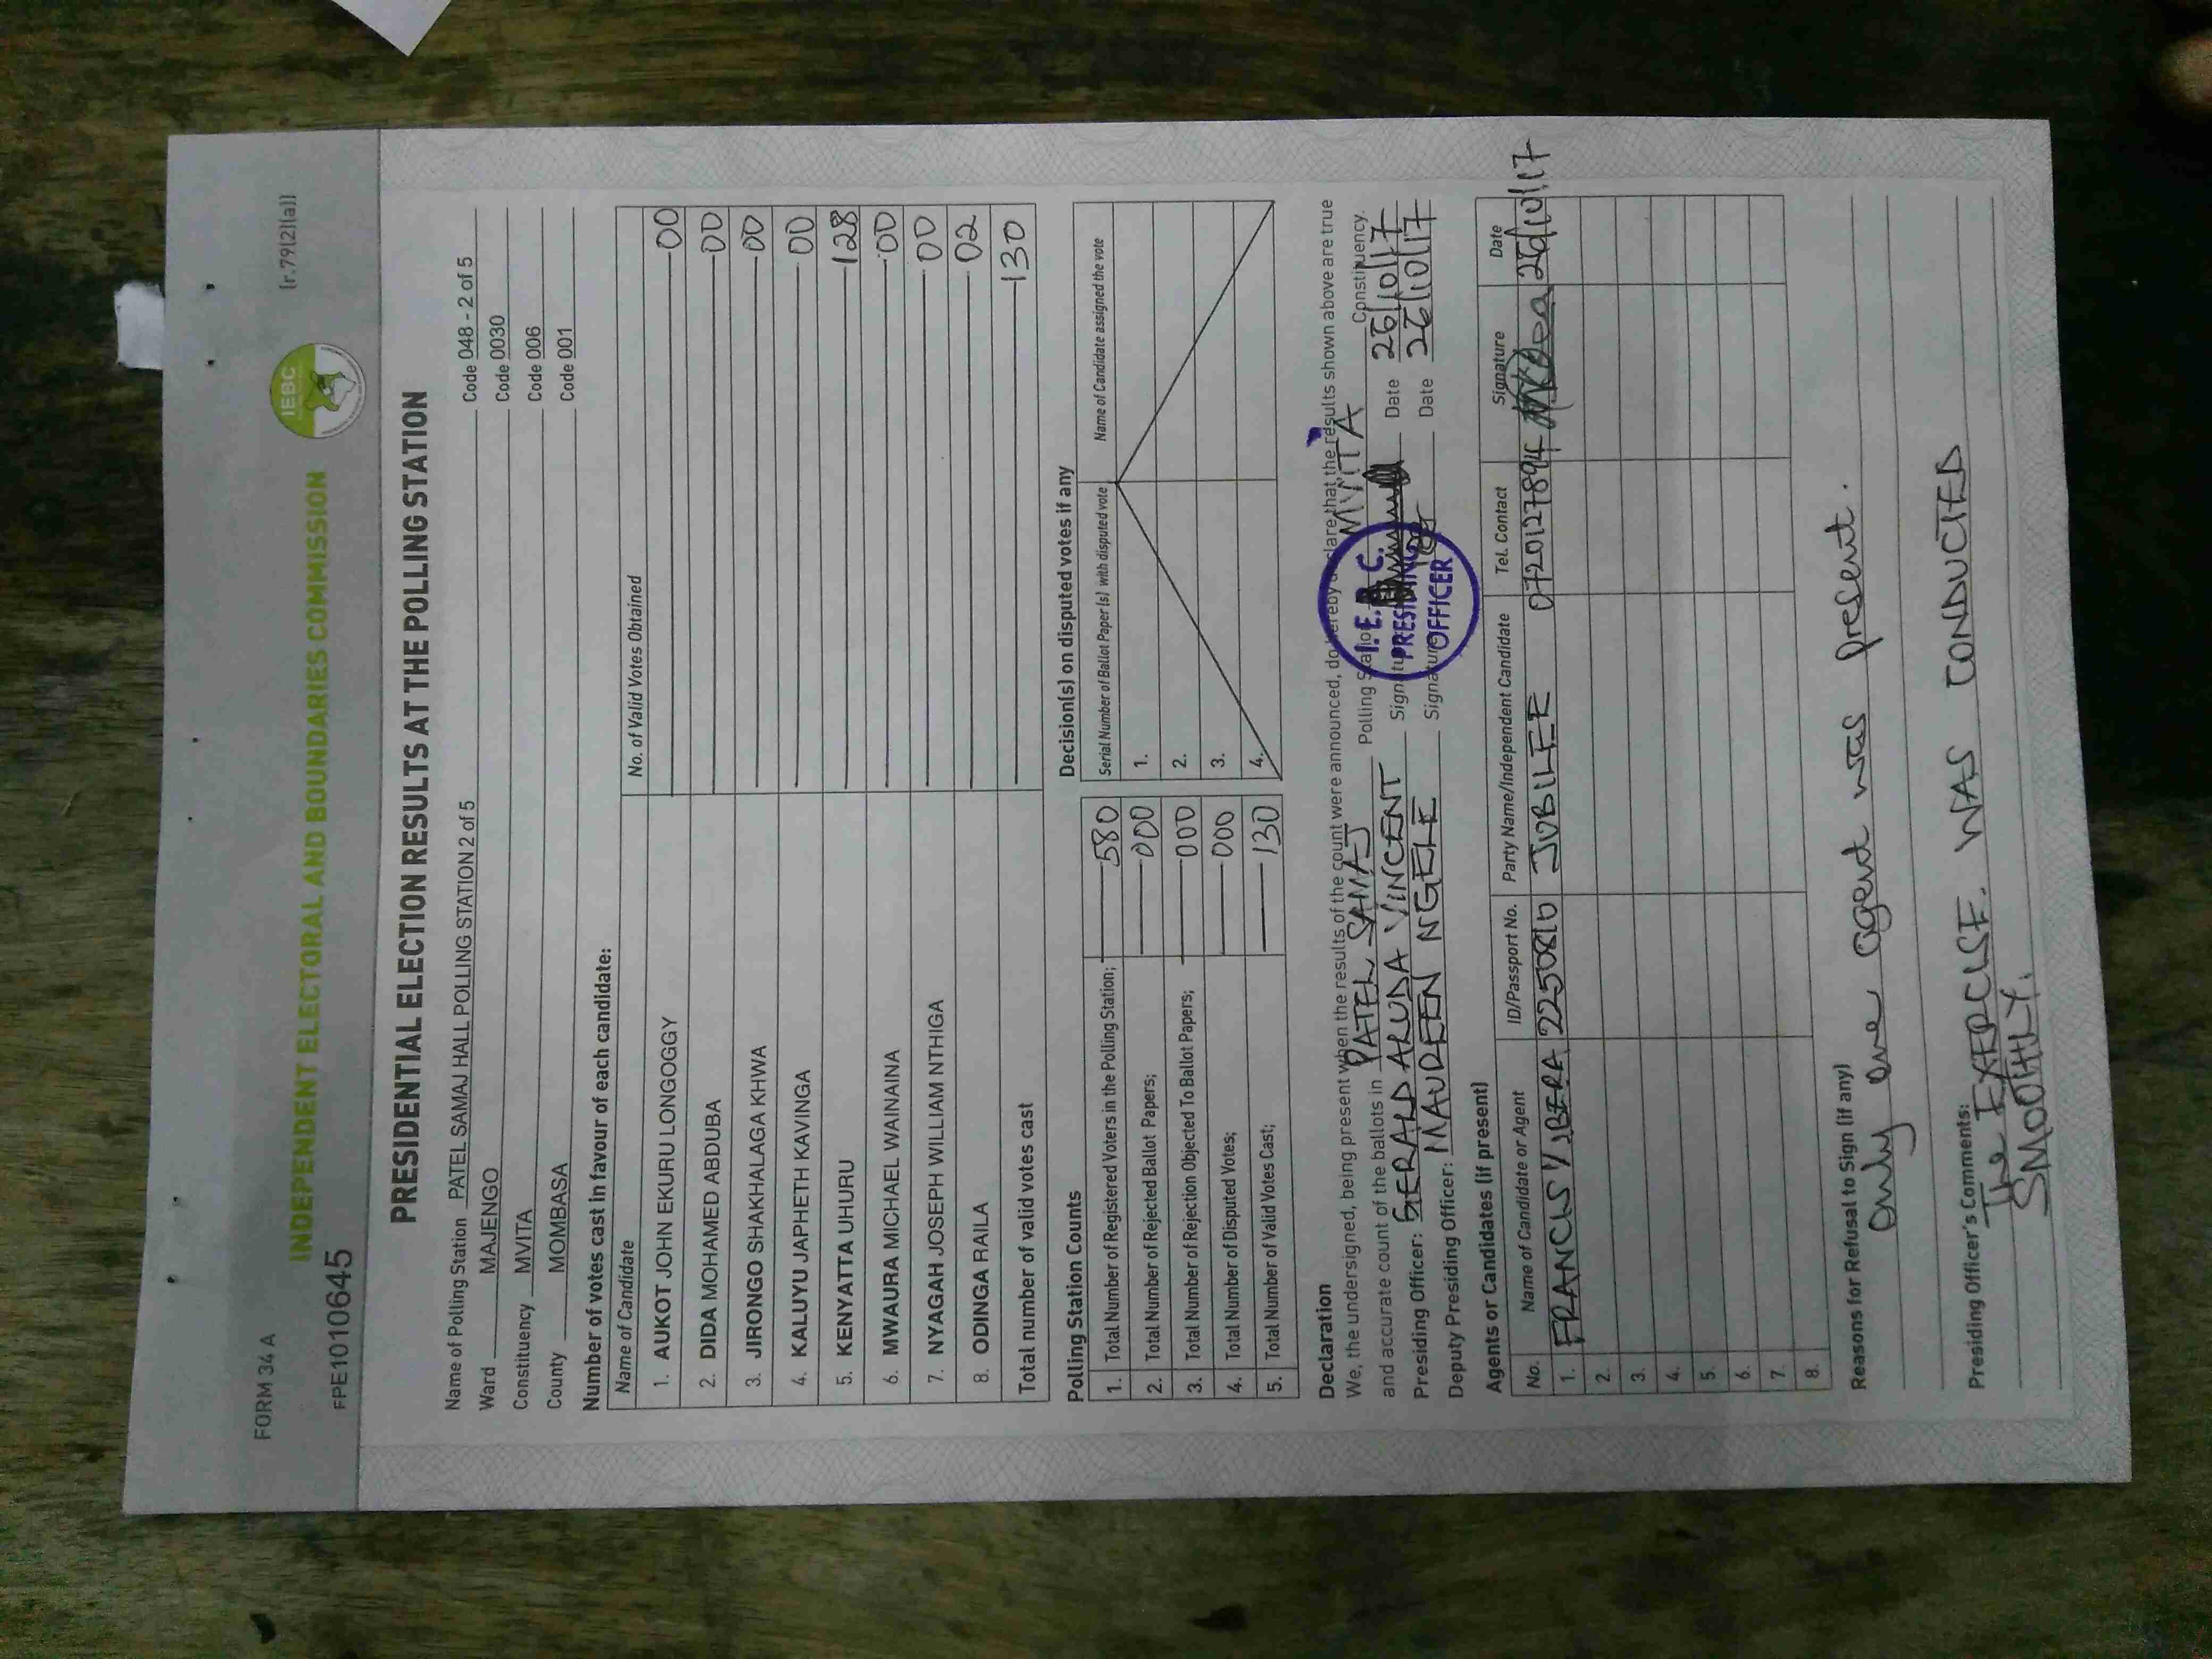 FORM 34 A
(r.79(2)(a))
INDEPENDENT ELECTORAL AND BOUNDARIES COMMISSION
IEBC
FPE1010645
PRESIDENTIAL ELECTION RESULTS AT THE POLLING STATION
Name of Polling Station PATEL SAMAJ HALL POLLING STATION 2 of 5 Code 048 - 2 of 5
Ward MAJENGO Code 0030
Constituency MVITA Code 006
County MOMBASA Code 001
Number of votes cast in favour of each candidate:
Name of Candidate No. of Valid Votes Obtained
1. AUKOT JOHN EKURU LONGOGGY 00
2. DIDA MOHAMED ABDUBA 00
3. JIRONGO SHAKHALAGA KHWA 00
4. KALUYU JAPHETH KAVINGA 00
5. KENYATTA UHURU 128
6. MWAURA MICHAEL WAINAINA 00
7. NYAGAH JOSEPH WILLIAM NTHIGA 00
8. ODINGA RAILA 02
Total number of valid votes cast 130
Polling Station Counts
1. Total Number of Registered Voters in the Polling Station; 580
2. Total Number of Rejected Ballot Papers; 000
3. Total Number of Rejection Objected To Ballot Papers; 000
4. Total Number of Disputed Votes; 000
5. Total Number of Valid Votes Cast; 130
Decision(s) on disputed votes if any
Serial Number of Ballot Paper(s) with disputed vote Name of Candidate assigned the vote
1.
2.
3.
4.
Declaration
We, the undersigned, being present when the results of the count were announced, do hereby declare that the results shown above are true
and accurate count of the ballots in PATEL SAMAJ Polling Station MVITA Constituency.
Presiding Officer: GERALD ALUDA VINCENT Signature Date 26/10/17
Deputy Presiding Officer: MAUREEN NGELE Signature Date 26/10/17
I.E.B.C.
PRESIDING
OFFICER
Agents or Candidates (if present)
No. Name of Candidate or Agent ID/Passport No. Party Name/Independent Candidate Tel. Contact Signature Date
1. FRANCIS 22508810 JUBILEE 0720127894 26/10/17
2.
3.
4.
5.
6.
7.
8.
Reasons for Refusal to Sign (if any)
Only one agent was present.
Presiding Officer's Comments:
The EXERCISE. WAS CONDUCTED
SMOOTHLY.